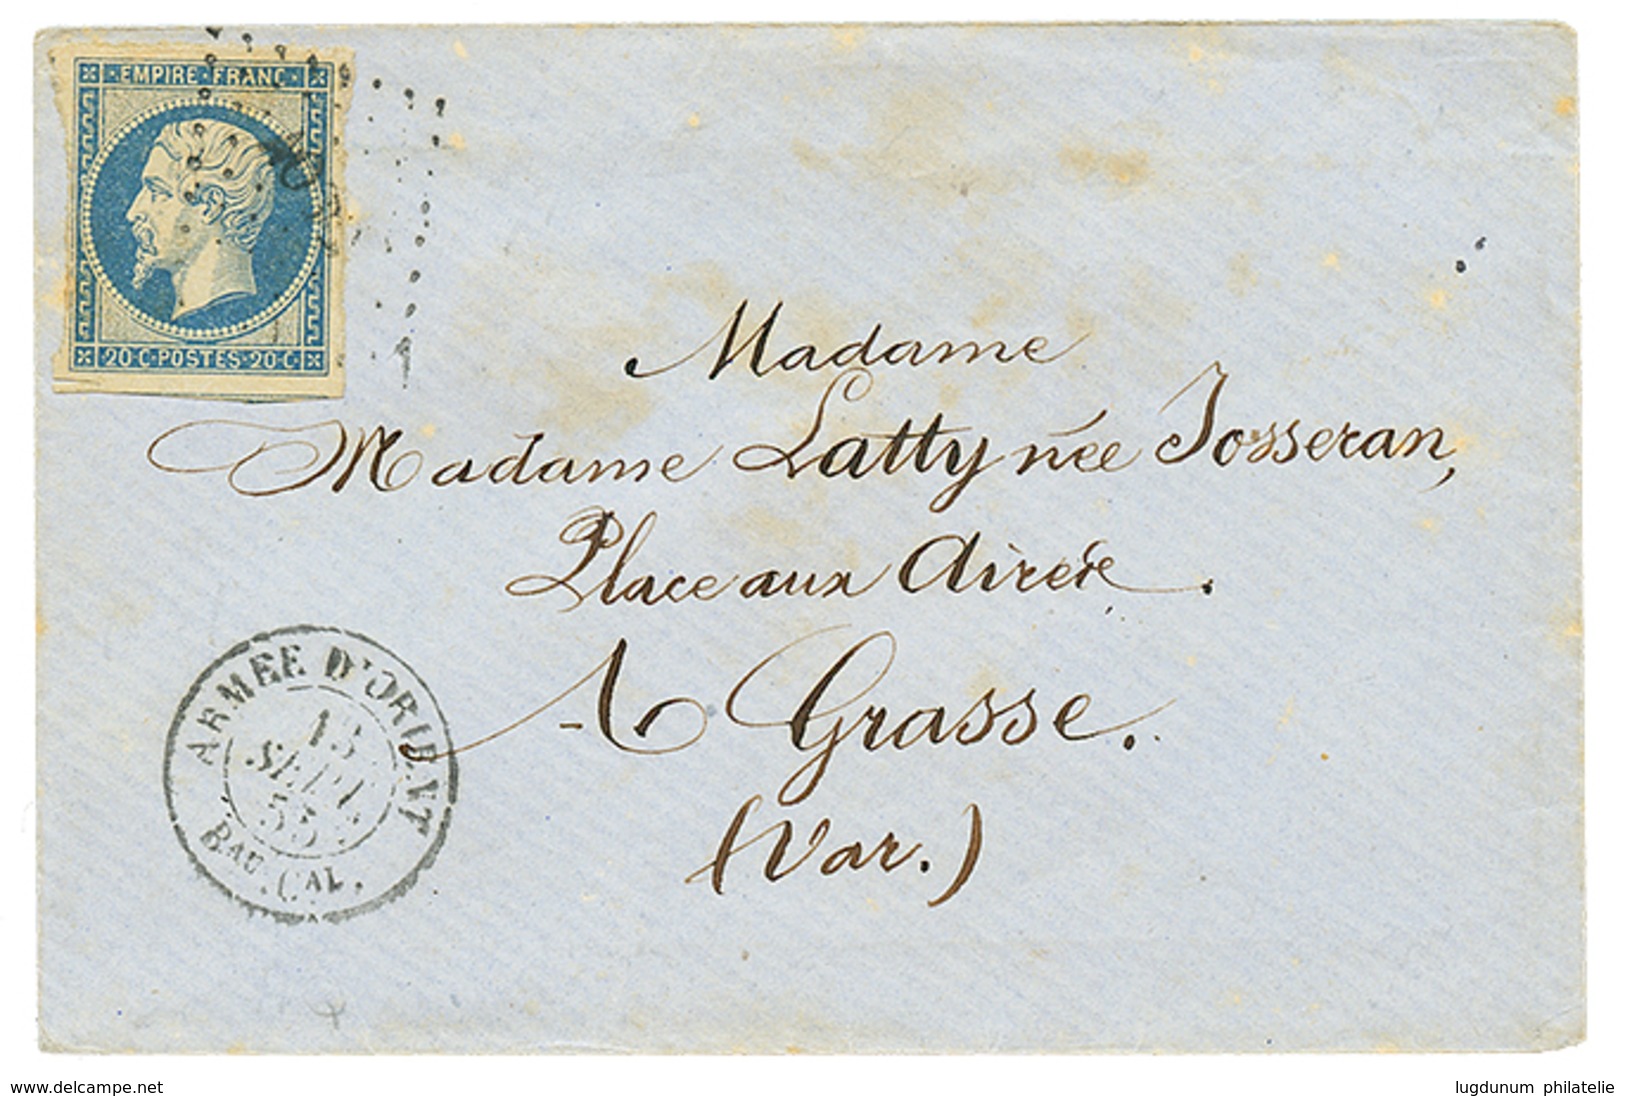 EMPIRE · FRANC
20·C·POSTES·20·C
Madame
Madame Latty née Josseran,
Place aux Aires.
À Grasse.
(Var.)
ARMÉE D'ORIENT
13
SEPT.
55
Bau. CAL.
www.delcampe.net
lugdunum philatelie